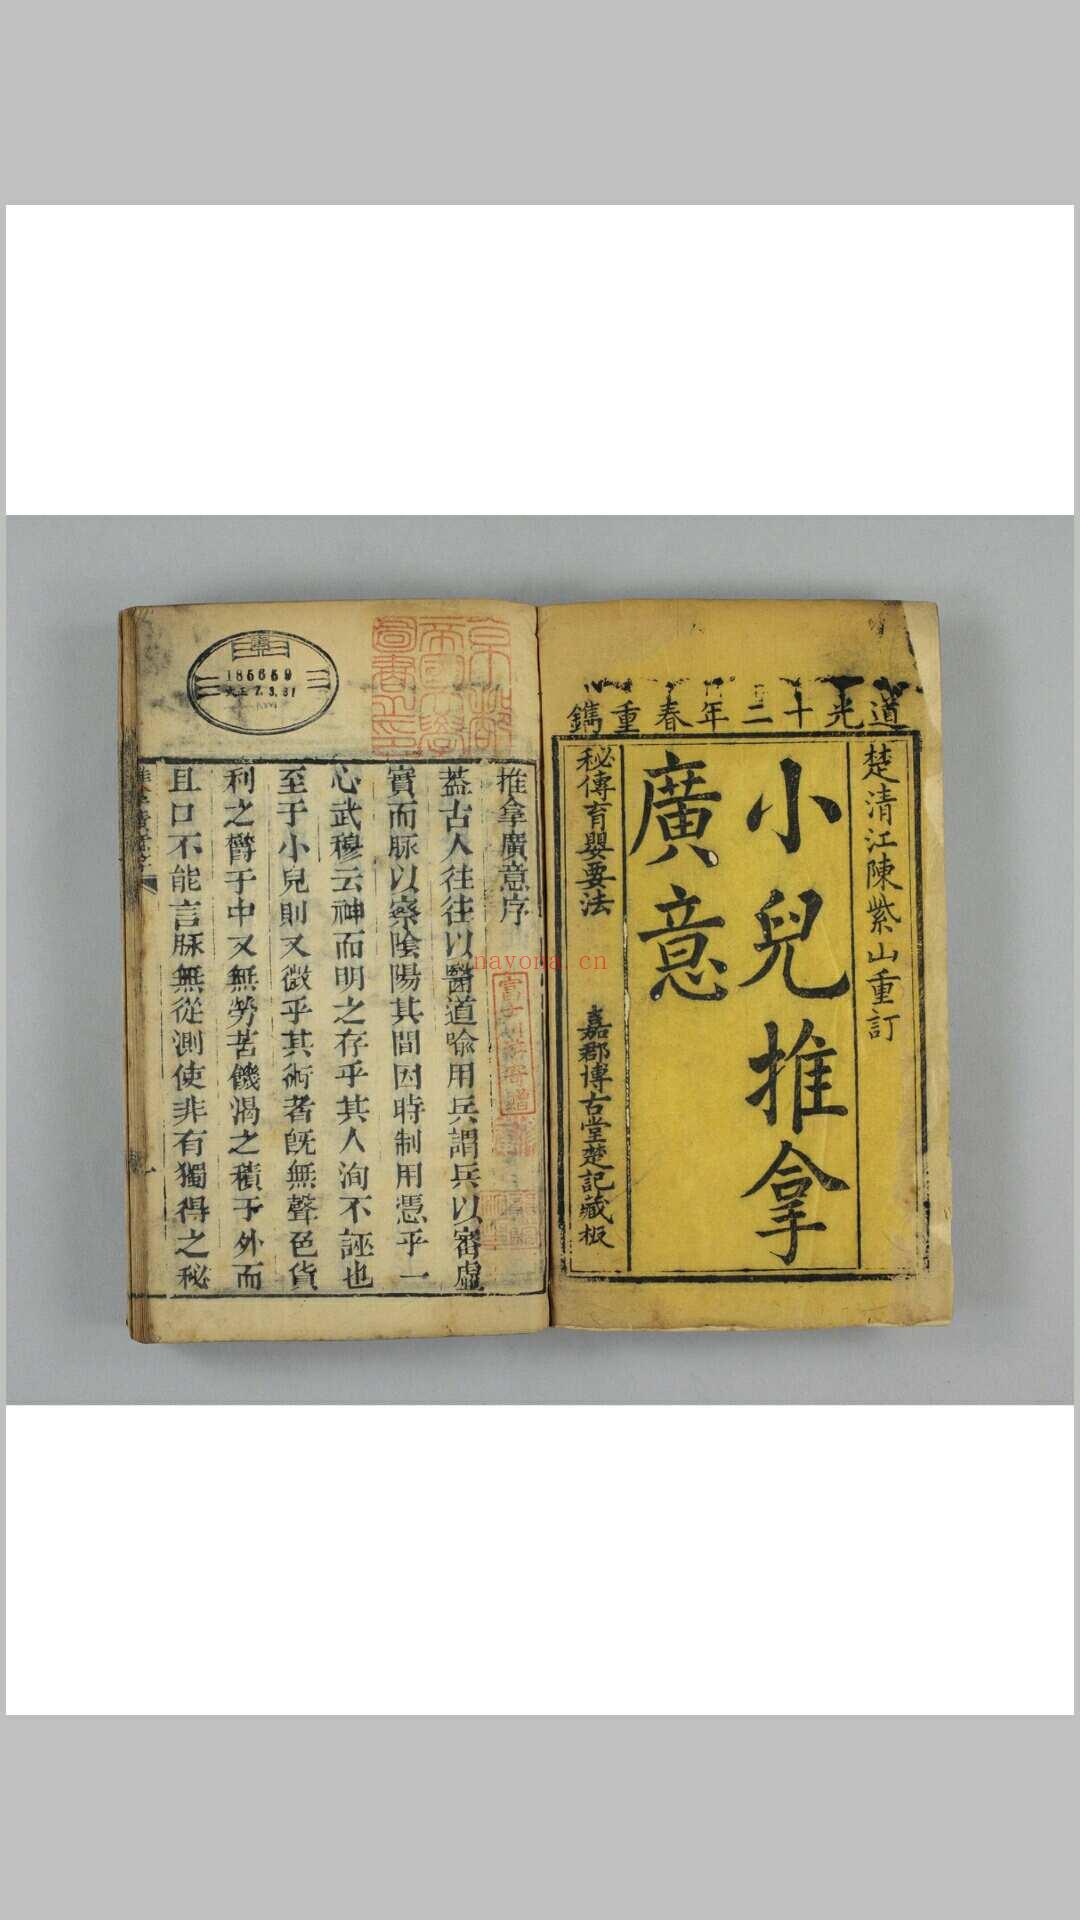 道光十二年春重鐫
楚清江陳紫山重訂
小兒推拿
廣意
秘傳育嬰要法
嘉郡博古堂楚記藏板
推拿廣意序
蓋古人往往以醫道喻用兵謂兵以審虛
實而脉以察陰陽其間因時制用憑乎一
心武穆云神而明之存乎其人洵不誣也
至于小兒則又微乎其術者旣無聲色貨
利之欝于中又無勞苦饑渴之積于外而
且口不能言脉無從測使非有獨得之秘
一
京都
帝國大學
圖書之印
185659
大正7.3.31
nayona.cn